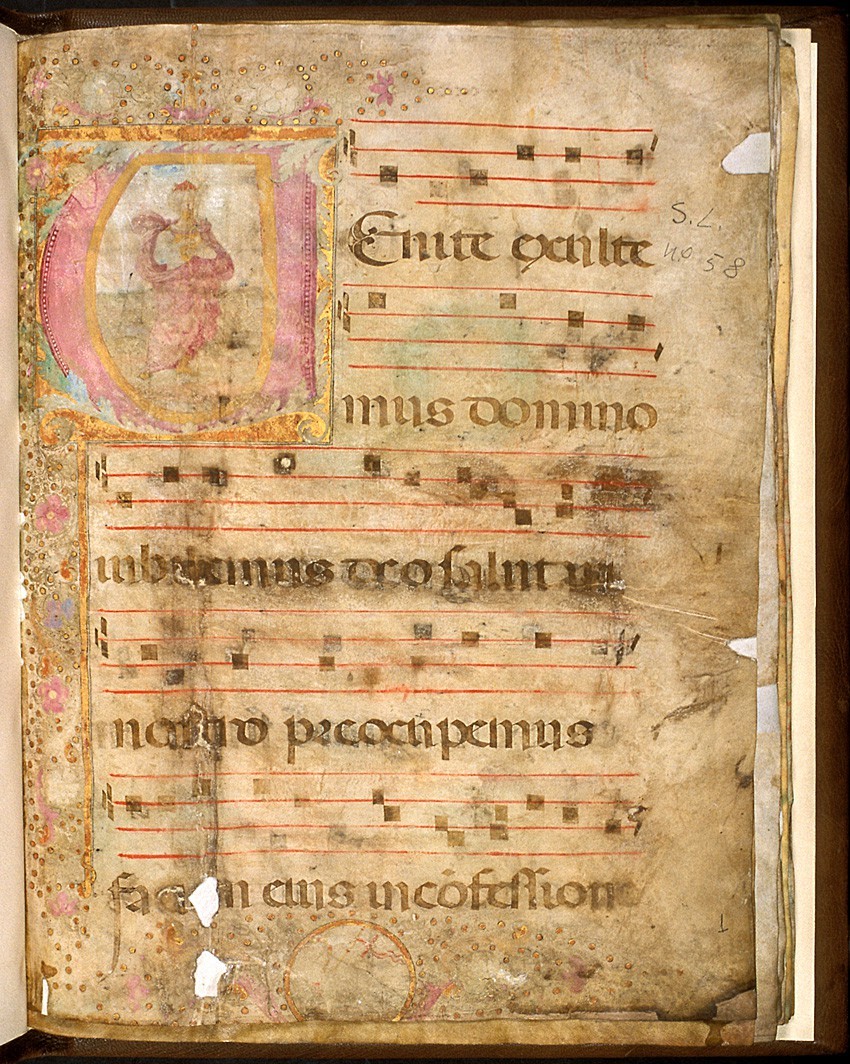 VEnite exulte
S. L.
no 58
mus domino
iubilemus deo salutari
nostro preocupemus
faciem eius in cofessione
1